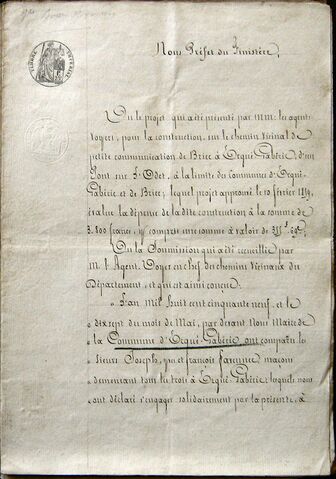 Nous Préfet du Finistère,
Vu le projet qui a été présenté par mm. les agents
voyers, pour la construction, sur le chemin vicinal de
petite communication de Briec à Ergué-Gabéric, d'un
Pont sur l'Odet, à la limite des Communes d'Ergué-
Gabéric et de Briec, lequel projet approuvé le 10 février 1859,
évalue la dépense de la dite construction à la somme de
3.800 francs, y compris une somme à valoir de
Vu la Soumission qui a été recueillie par
M. l'Agent-Voyer en chef des chemins Vicinaux du
Département, et qui est ainsi conçue:
" L'an mil huit cent cinquante neuf, et le
" dix sept du mois de Mai, par devant Nous Maire de
" la Commune d'Ergué-Gabéric ont comparu les
" sieurs Joseph, et françois maçons
" demeurant tous les trois à Ergué-Gabéric, lesquels nous
" ont déclaré s'engager solidairement par la présente, à